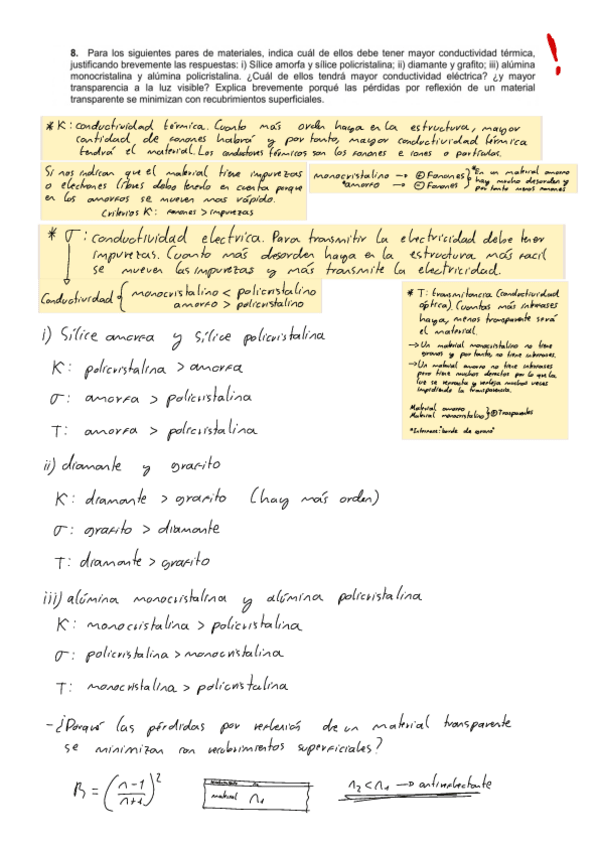 8. Para los siguientes pares de materiales, indica cuál de ellos debe tener mayor conductividad térmica,
justificando brevemente las respuestas: i) Sílice amorfa y sílice policristalina; ii) diamante y grafito; iii) alúmina
monocristalina y alúmina policristalina. ¿Cuál de ellos tendrá mayor conductividad eléctrica? ¿y mayor
transparencia a la luz visible? Explica brevemente porqué las pérdidas por reflexión de un material
transparente se minimizan con recubrimientos superficiales.
!
* K: conductividad térmica. Cuanto más orden haya en la estructura, mayor
cantidad de fonones habrá y por tanto, mayor conductividad térmica
tendrá el material. Los conductores térmicos son los fonones e iones o partículas.
Si nos indican que el material tiene impurezas
o electrones libres debo tenerlo en cuenta porque
en los amorfos se mueven mas rápido.
Criterios K: fonones > impurezas
monocristalino → ⊕ Fonones
*amorfo → ⊖ Fonones
*En un material amorfo
hay mucho desorden y
por tanto menos fonones
* σ: conductividad electrica. Para transmitir la electricidad debe tener
impurezas. Cuanto más desorden haya en la estructura más facil
se mueven las impurezas y más transmite la electricidad.
Conductividad { monocristalino < policristalino
amorfo > policristalino
* T: transmitancia (conductividad
óptica). Cuantas más interfases
haya, menos transparente será
el material.
→ Un material monocristalino no tiene
granos y por tanto no tiene interfases.
→ Un material amorfo no tiene interfases
pero tiene muchos defectos por lo que la
luz se refracta y refleja muchas veces
impidiendo la transparencia.
Material amorfo
Material monocristalino } ⊕ Trasparentes
*Interfase: "borde de grano"
i) Sílice amorfa y sílice policristalina
K: policristalina > amorfa
σ: amorfa > policristalina
T: amorfa > policristalina
ii) diamante y grafito
K: diamante > grafito (hay más orden)
σ: grafito > diamante
T: diamante > grafito
iii) alúmina monocristalina y alúmina policristalina
K: monocristalina > policristalina
σ: policristalina > monocristalina
T: monocristalina > policristalina
- ¿Porqué las pérdidas por reflexión de un material transparente
se minimizan con recubrimientos superficiales?
R = ((n-1)/(n+1))²
material n₁
n₂ < n₁ → antireflectante